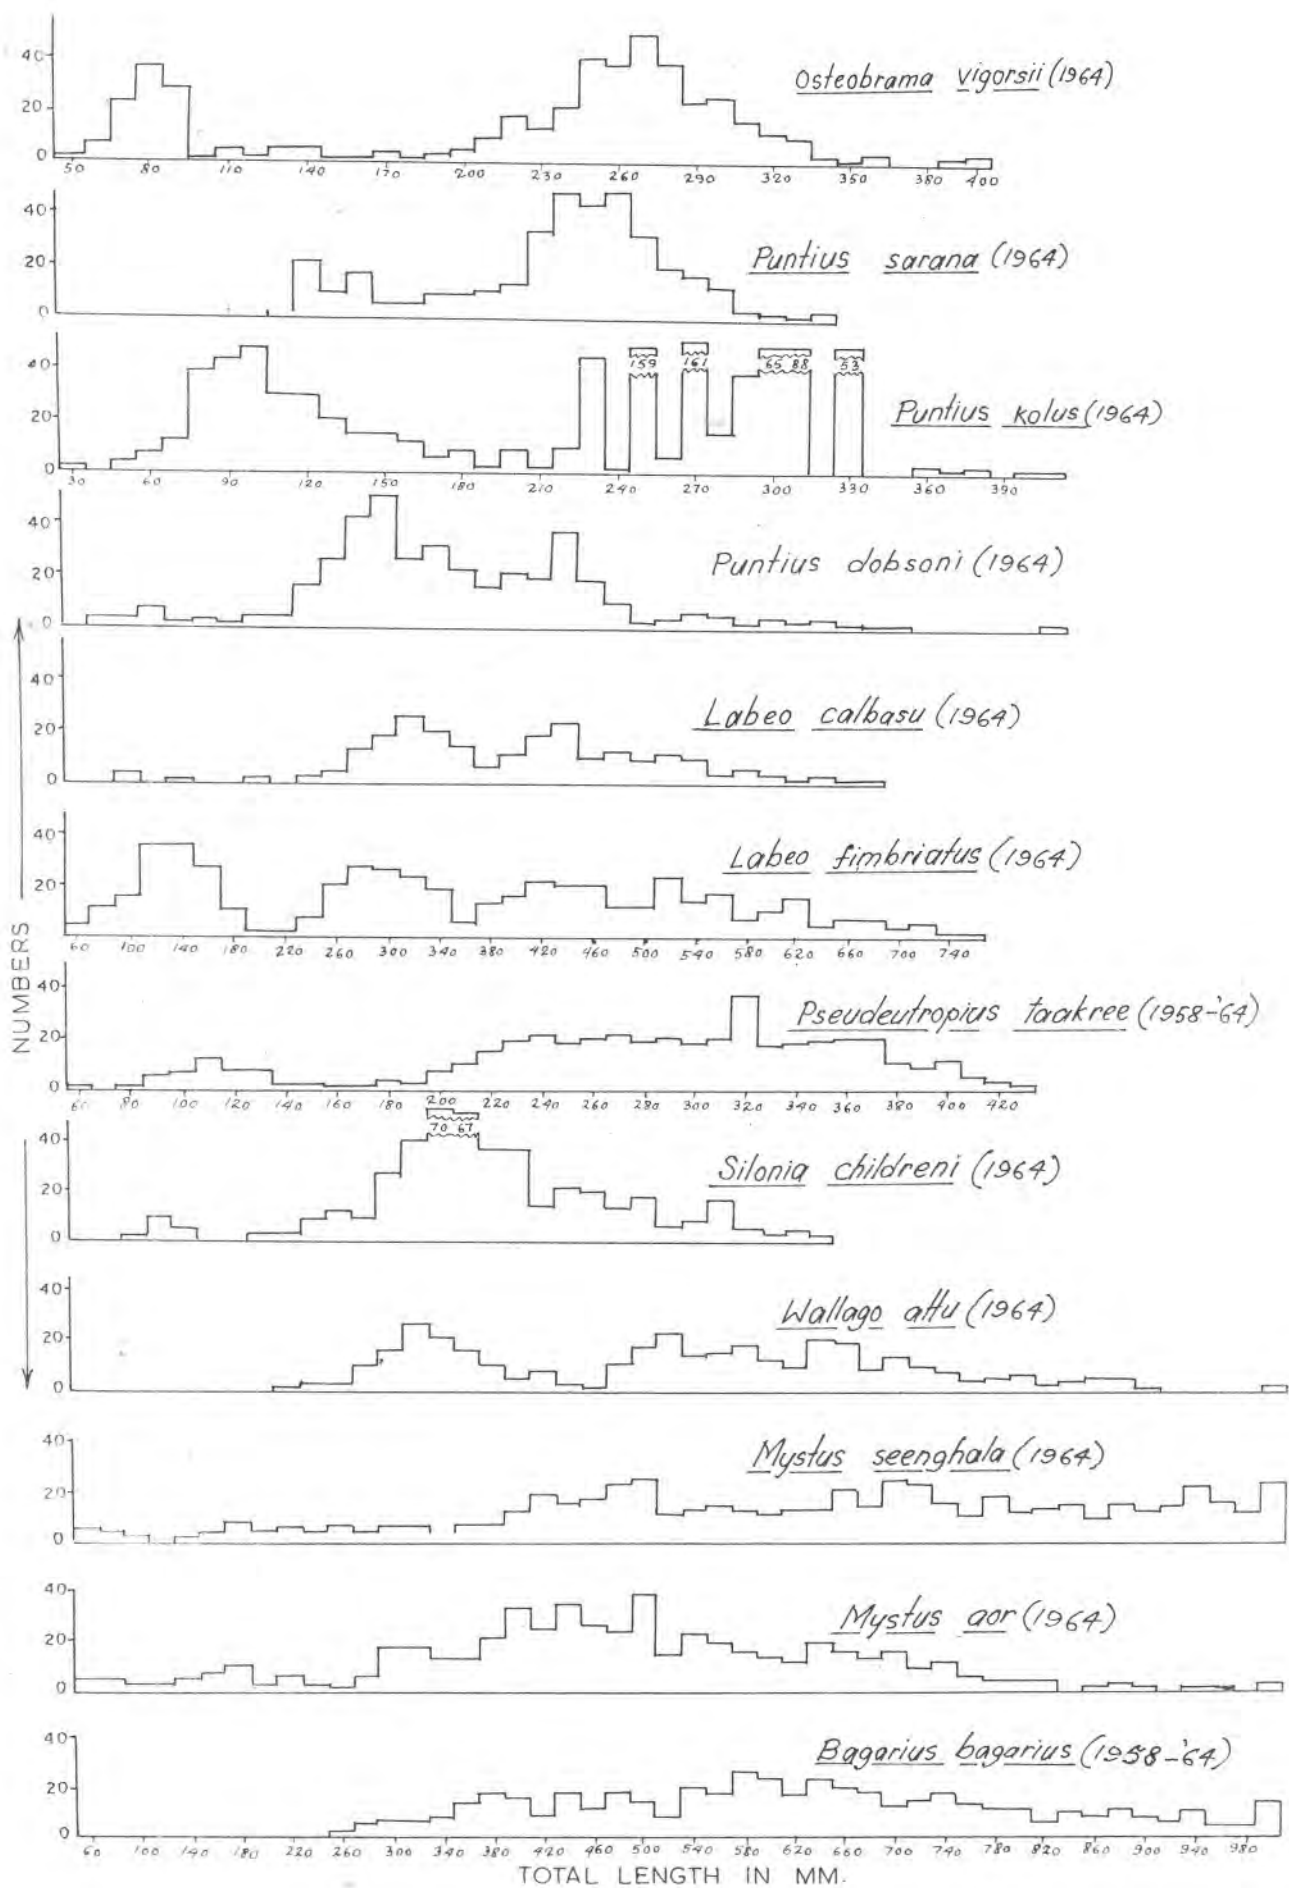 40
20
0
Osteobrama vigorsii (1964)
50 80 110 140 170 200 230 260 290 320 350 380 400
40
20
0
Puntius sarana (1964)
40
20
0
159 161 65 88 53
Puntius kolus (1964)
30 60 90 120 150 180 210 240 270 300 330 360 390
40
20
0
Puntius dobsoni (1964)
40
20
0
Labeo calbasu (1964)
40
20
Labeo fimbriatus (1964)
60 100 140 180 220 260 300 340 380 420 460 500 540 580 620 660 700 740
NUMBERS
40
20
0
Pseudeutropius taakree (1958-'64)
60 80 100 120 140 160 180 200 220 240 260 280 300 320 340 360 380 400 420
70 67
40
20
0
Silonia childreni (1964)
40
20
0
Wallago attu (1964)
40
20
0
Mystus seenghala (1964)
40
20
0
Mystus aor (1964)
40
20
0
Bagarius bagarius (1958-'64)
60 100 140 180 220 260 300 340 380 420 460 500 540 580 620 660 700 740 780 820 860 900 940 980
TOTAL LENGTH IN MM.